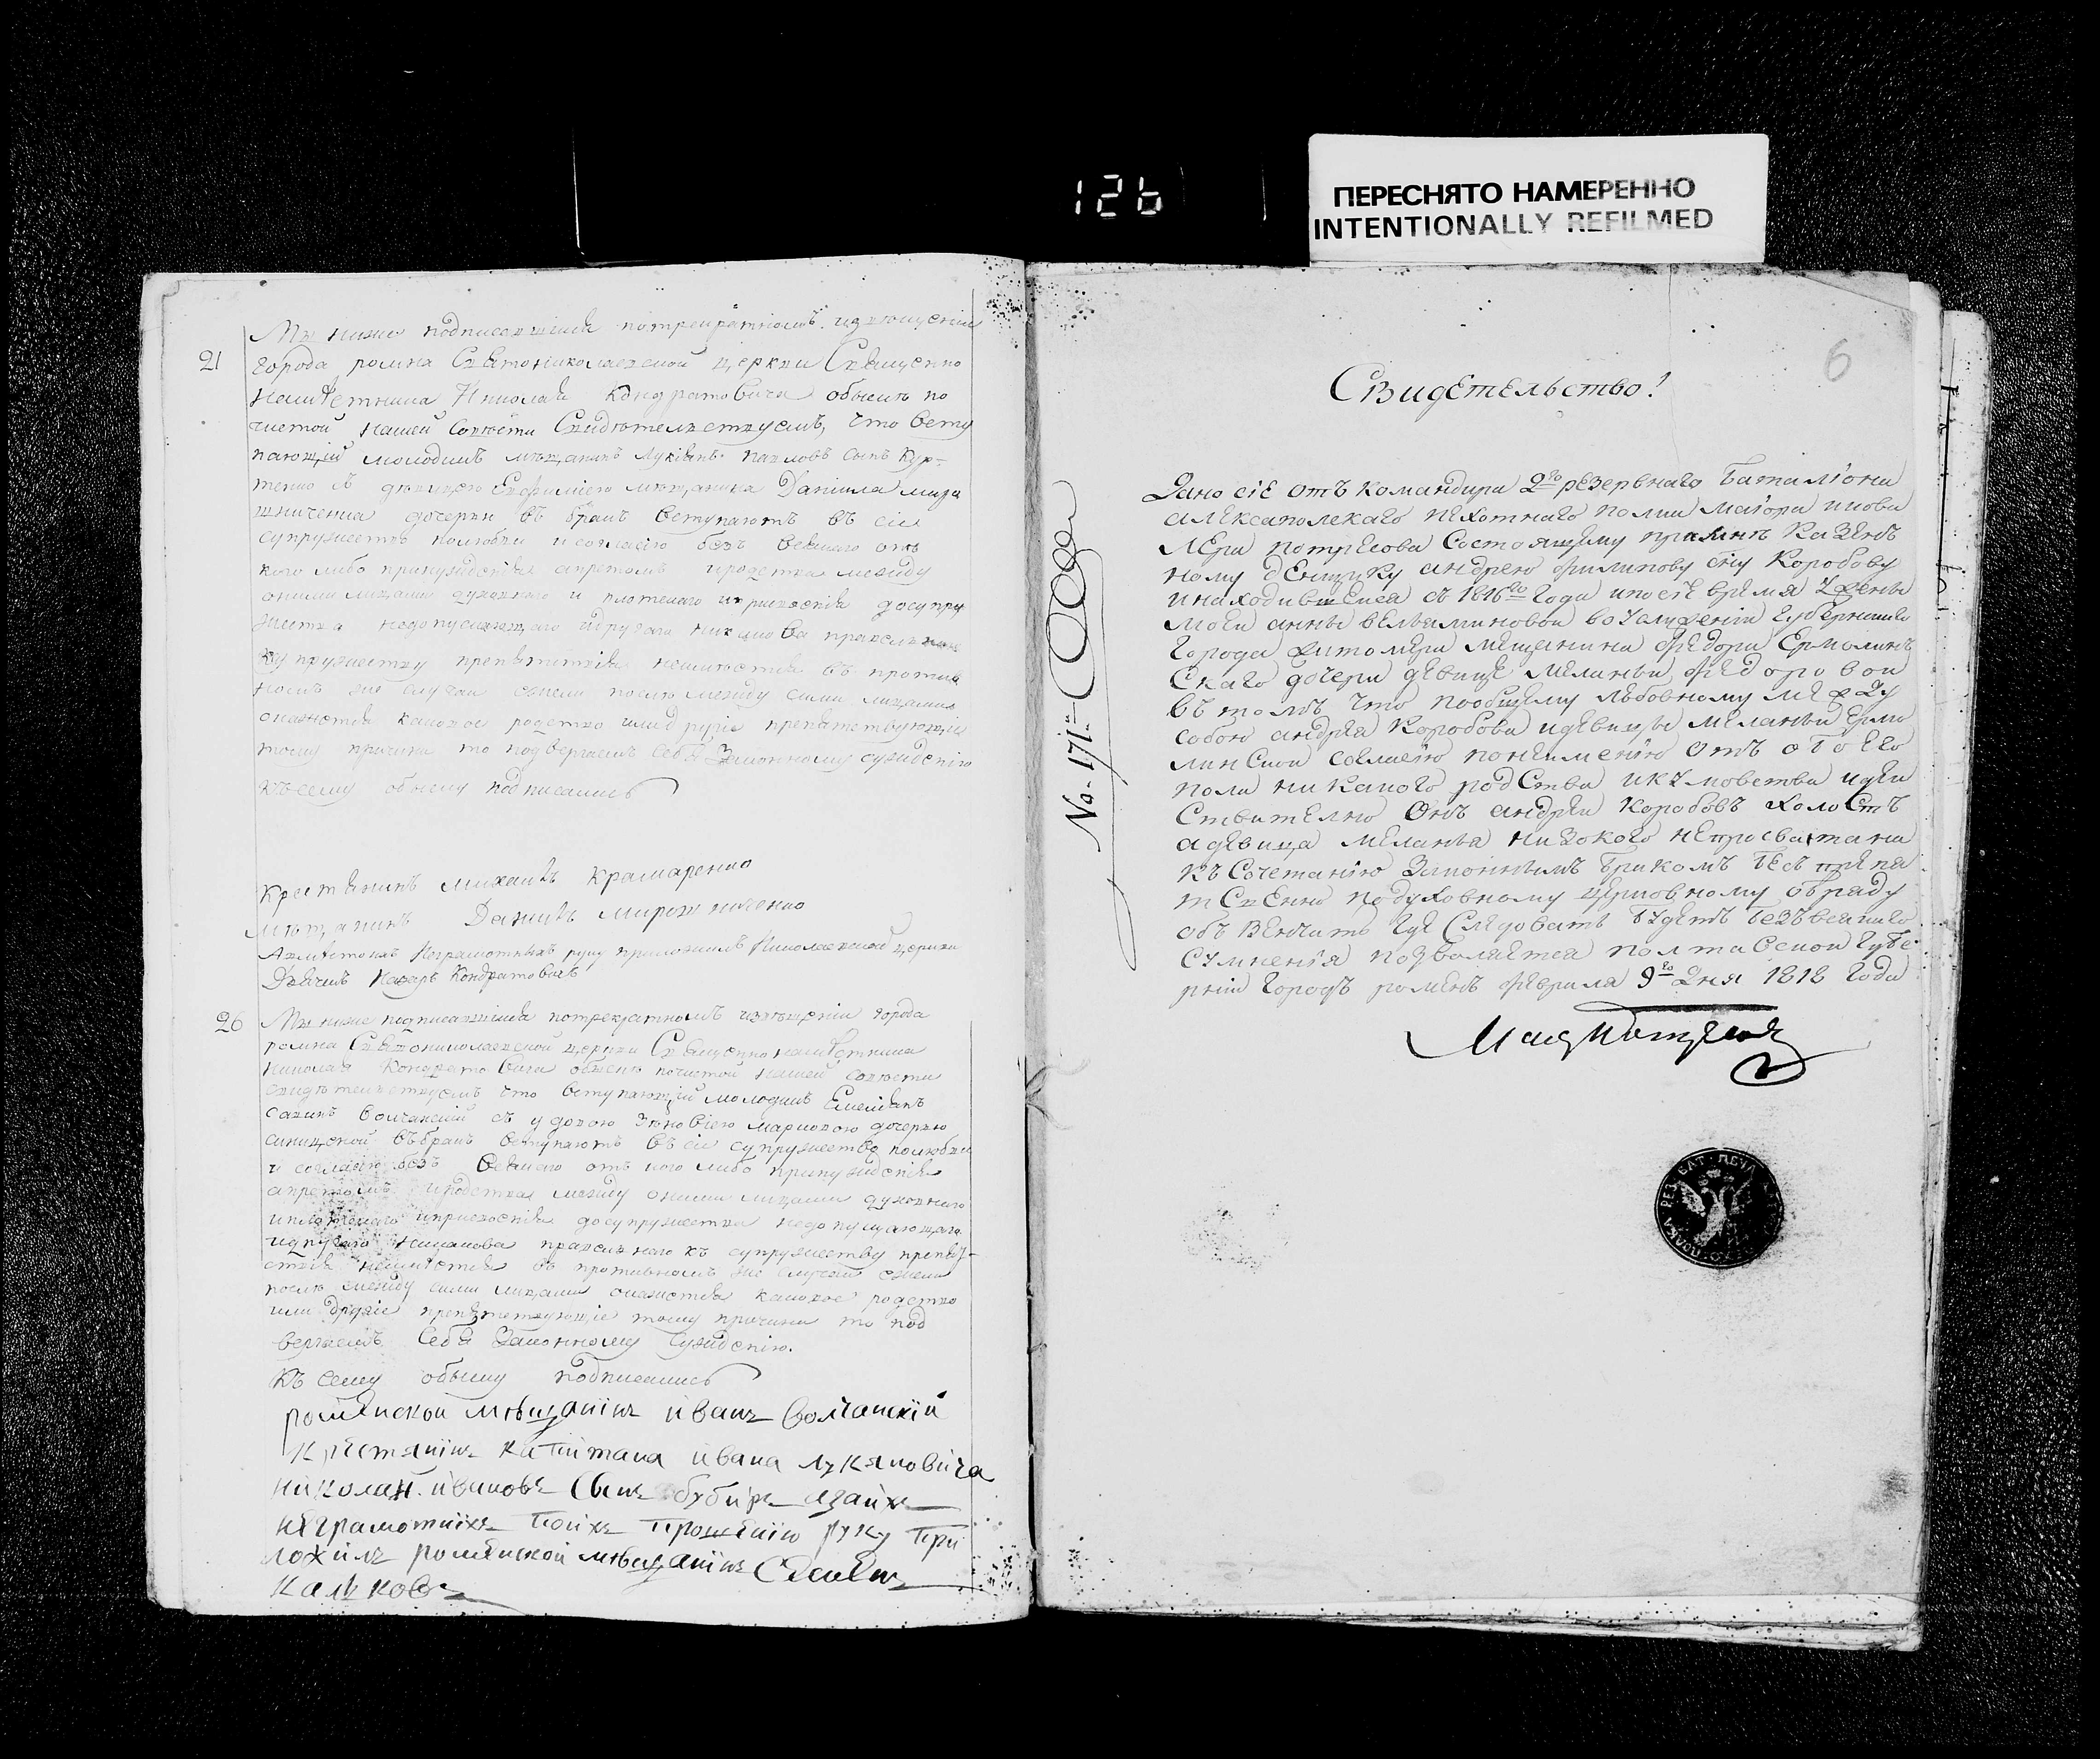 126
ПЕРЕСНЯТО НАМЕРЕННО
INTENTIONALLY REFILMED
21
Мы ниже подписавшіися потрекратномъ извѣщеніи
города ромна Святониколаевской церкви Священно
намѣстника Николая Кондратовича обыскъ по
чистой нашей Совѣсти Свидѣтелствуемъ, что всту
пающій молодикъ мѣщанинъ Лукіянъ Павловъ сынъ Кур-
тенко съ дѣвицею Евфиміею мѣщанина Даніила миро
шниченка дочерью въ бракъ вступаютъ въ сіе
супружество полюбви и согласію безъ всякаго отъ
кого либо принужденія апретомъ иродства между
оними лицами духовнаго и плотскаго исвойствія досупру
жества недопускающаго идругаго никакова правилнаго
супружеству препятствія неимѣется въ против
номъ же случаи ежели послѣ между сими лицами
окажется каковое родство или другіе препятствующіе
тому причини то подвергаемъ Себя Законному сужденію
Къ сему обыску подписались
Крестянинъ михаилъ Крамаренко
мѣщанинъ Данилъ мирошниченко
Авмѣстоихъ Неграмотныхъ руку приложилъ Николаевской церкви
Дячекъ Назаръ Кондратовичъ
26
Мы ниже подписавшіися потрекратномъ извѣщеніи города
ромна Святониколаевской церкви Священнонамѣстника
николая Кондратовича обыскъ почистой нашей совѣсти
свидѣтелствуемъ что вступающій молодикъ Емеліянъ
савинъ волчанскій съ удовою Зѣновіею марковою дочерью
синицкой въбракъ вступаютъ въ сіе супружество полюбви
и согласію безъ всякаго отъ кого либо принужденія
апретомъ иродства между оними лицами духовнаго
иплотскаго исвойствія досупружества недопускающаго
идругаго никакова правилнаго къ супружеству препят-
ствія неимѣется въ противномъ же случаи ежели
послѣ между сими лицами окажется каковое родство
или другіе препятствующіе тому причини то под
вергаемъ Себя Законному сужденію.
Къ сему обыску подписались
роменской мѣщанинъ иванъ волчанскій
Крестянинъ капитана ивана лукяновича
николай ивановъ Сынъ бубиръ азаихъ
неграмотнихъ поихъ прошенію руку при
ложилъ роменской мѣщанинъ Семенъ
калковъ
6
Свидѣтельство!
No. 171.
Дано сіе отъ командира 2го резервнаго Баталіона
алексапольскаго пехотнаго полка маіора икова
лера потресова Состоящему примнѣ Казенъ
ному денщику андрею филипову сну Коробову
инаходившемся съ 1816го года ипосіе время Zжены
моей анны вельяминовой воуслуженіи губернскаго
города житомера мещанина федора Ермолинъ
Скаго дочери девице меланьи федоровой
въ томъ что пообщему любовному межъду
собою андрея Коробова идевицы меланьи ермо
линской согласію понеимению отъ обоего
пола никакого родства икумовства идей
ствително Онъ андрей Коробовъ холостъ
адевица меланья низакого непросватана
къ Сочетанію Законнымъ бракомъ безъ препя
тсвенно подуховному церковному обряду
обѣвенчать где Следовать будетъ безъвсякаго
сумнения позволяется полтавской губе
рніи городъ роменъ февраля 9го Дня 1818 года